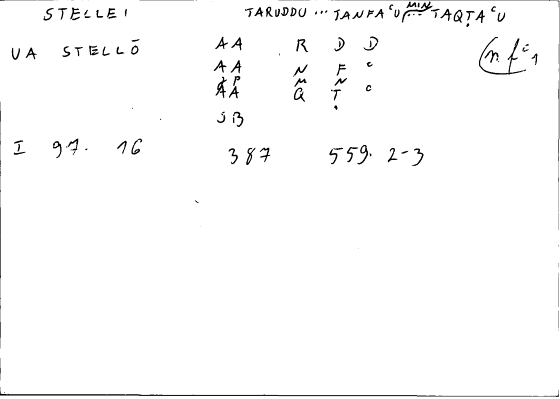 STELLEI TARUDDU ... TANFAᶜU MIN ... TAQṬAᶜU
UA STELLŌ AA R D D (n. fᶜ1
AA N F ᶜ
M N
AA Q Ṭ ᶜ
SB
I 97. 16 387 559. 2-3